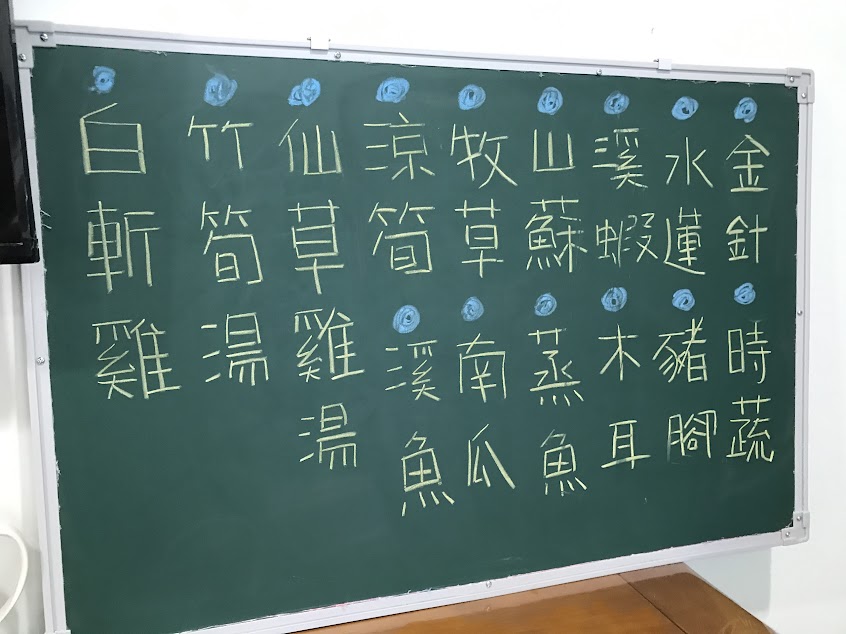 金針
時蔬
水蓮
豬腳
溪蝦
木耳
山蘇
蒸魚
牧草
南瓜
涼筍
溪魚
仙草雞湯
竹筍湯
白斬雞